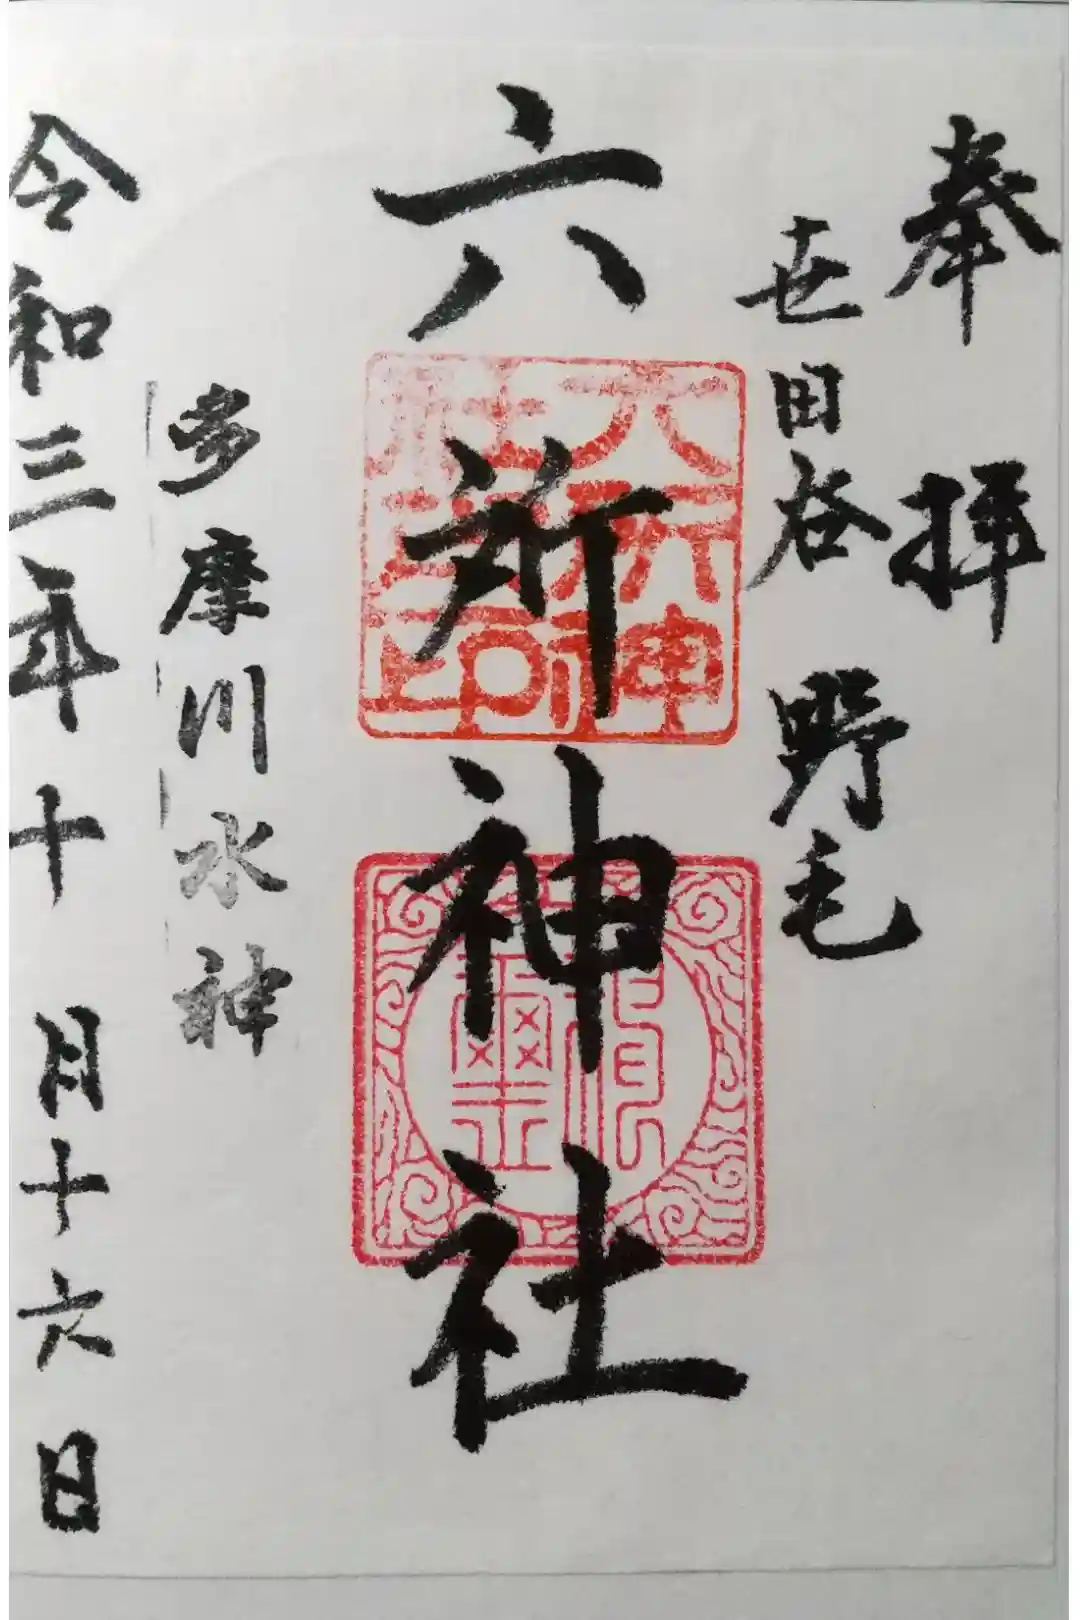 奉拝
世田谷 野毛
六所神社
多摩川水神
令和三年十月十六日
六所神社之印